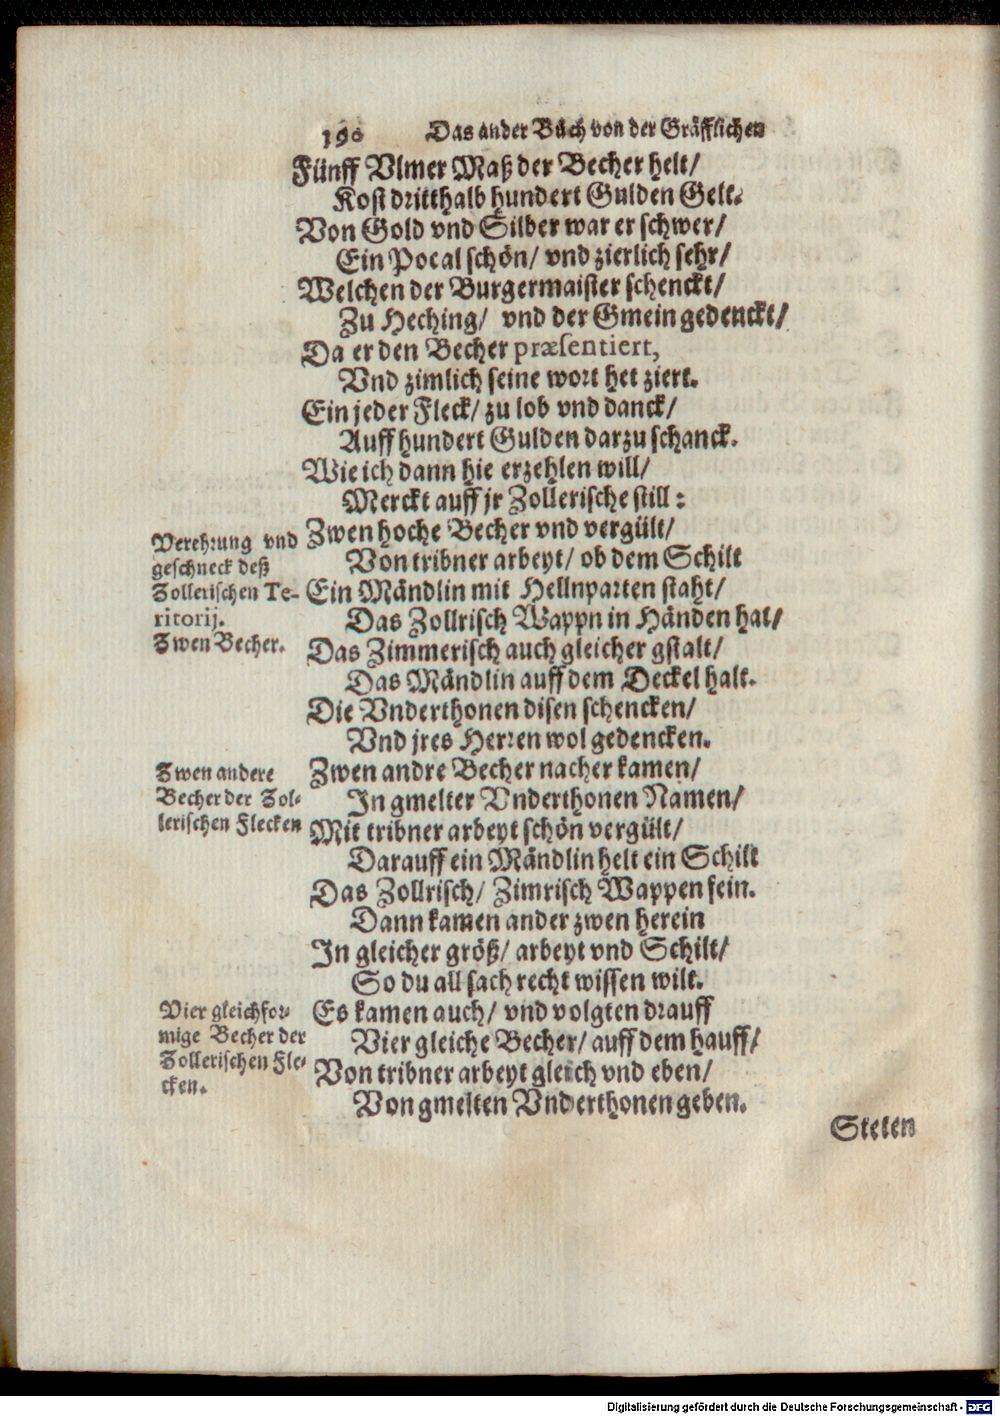 190 Das ander Buch von der Gräfflichen
Fünff Vlmer Maß der Becher helt/
Kost dritthalb hundert Gulden Gelt.
Von Gold vnd Silber war er schwer/
Ein Pocal schön/ vnd zierlich sehr/
Welchen der Burgermaister schenckt/
Zu Heching/ vnd der Gmein gedenckt/
Da er den Becher præsentiert,
Vnd zimlich seine wort het ziert.
Ein jeder Fleck/ zu lob vnd danck/
Auff hundert Gulden darzu schanck.
Wie ich dann hie erzehlen will/
Merckt auff jr Zollerische still:
Verehrung vnd
geschneck deß
Zollerischen Te-
ritorij.
Zwen Becher.
Zwen hoche Becher vnd vergült/
Von tribner arbeyt/ ob dem Schilt
Ein Mändlin mit Hellnparten staht/
Das Zollrisch Wappn in Händen hat/
Das Zimmerisch auch gleicher gstalt/
Das Mändlin auff dem Deckel halt.
Die Vnderthonen disen schencken/
Vnd jres Herren wol gedencken.
Zwen andere
Becher der Zol-
lerischen Flecken
Zwen andre Becher nacher kamen/
In gmelter Vnderthonen Namen/
Mit tribner arbeyt schön vergült/
Darauff ein Mändlin helt ein Schilt
Das Zollrisch/ Zimrisch Wappen fein.
Dann kamen ander zwen herein
In gleicher größ/ arbeyt vnd Schilt/
So du all sach recht wissen wilt.
Vier gleichfor-
mige Becher der
Zollerischen Fle-
cken.
Es kamen auch/ vnd volgten drauff
Vier gleiche Becher/ auff dem hauff/
Von tribner arbeyt gleich vnd eben/
Von gmelten Vnderthonen geben.
Steten
Digitalisierung gefördert durch die Deutsche Forschungsgemeinschaft - DFG